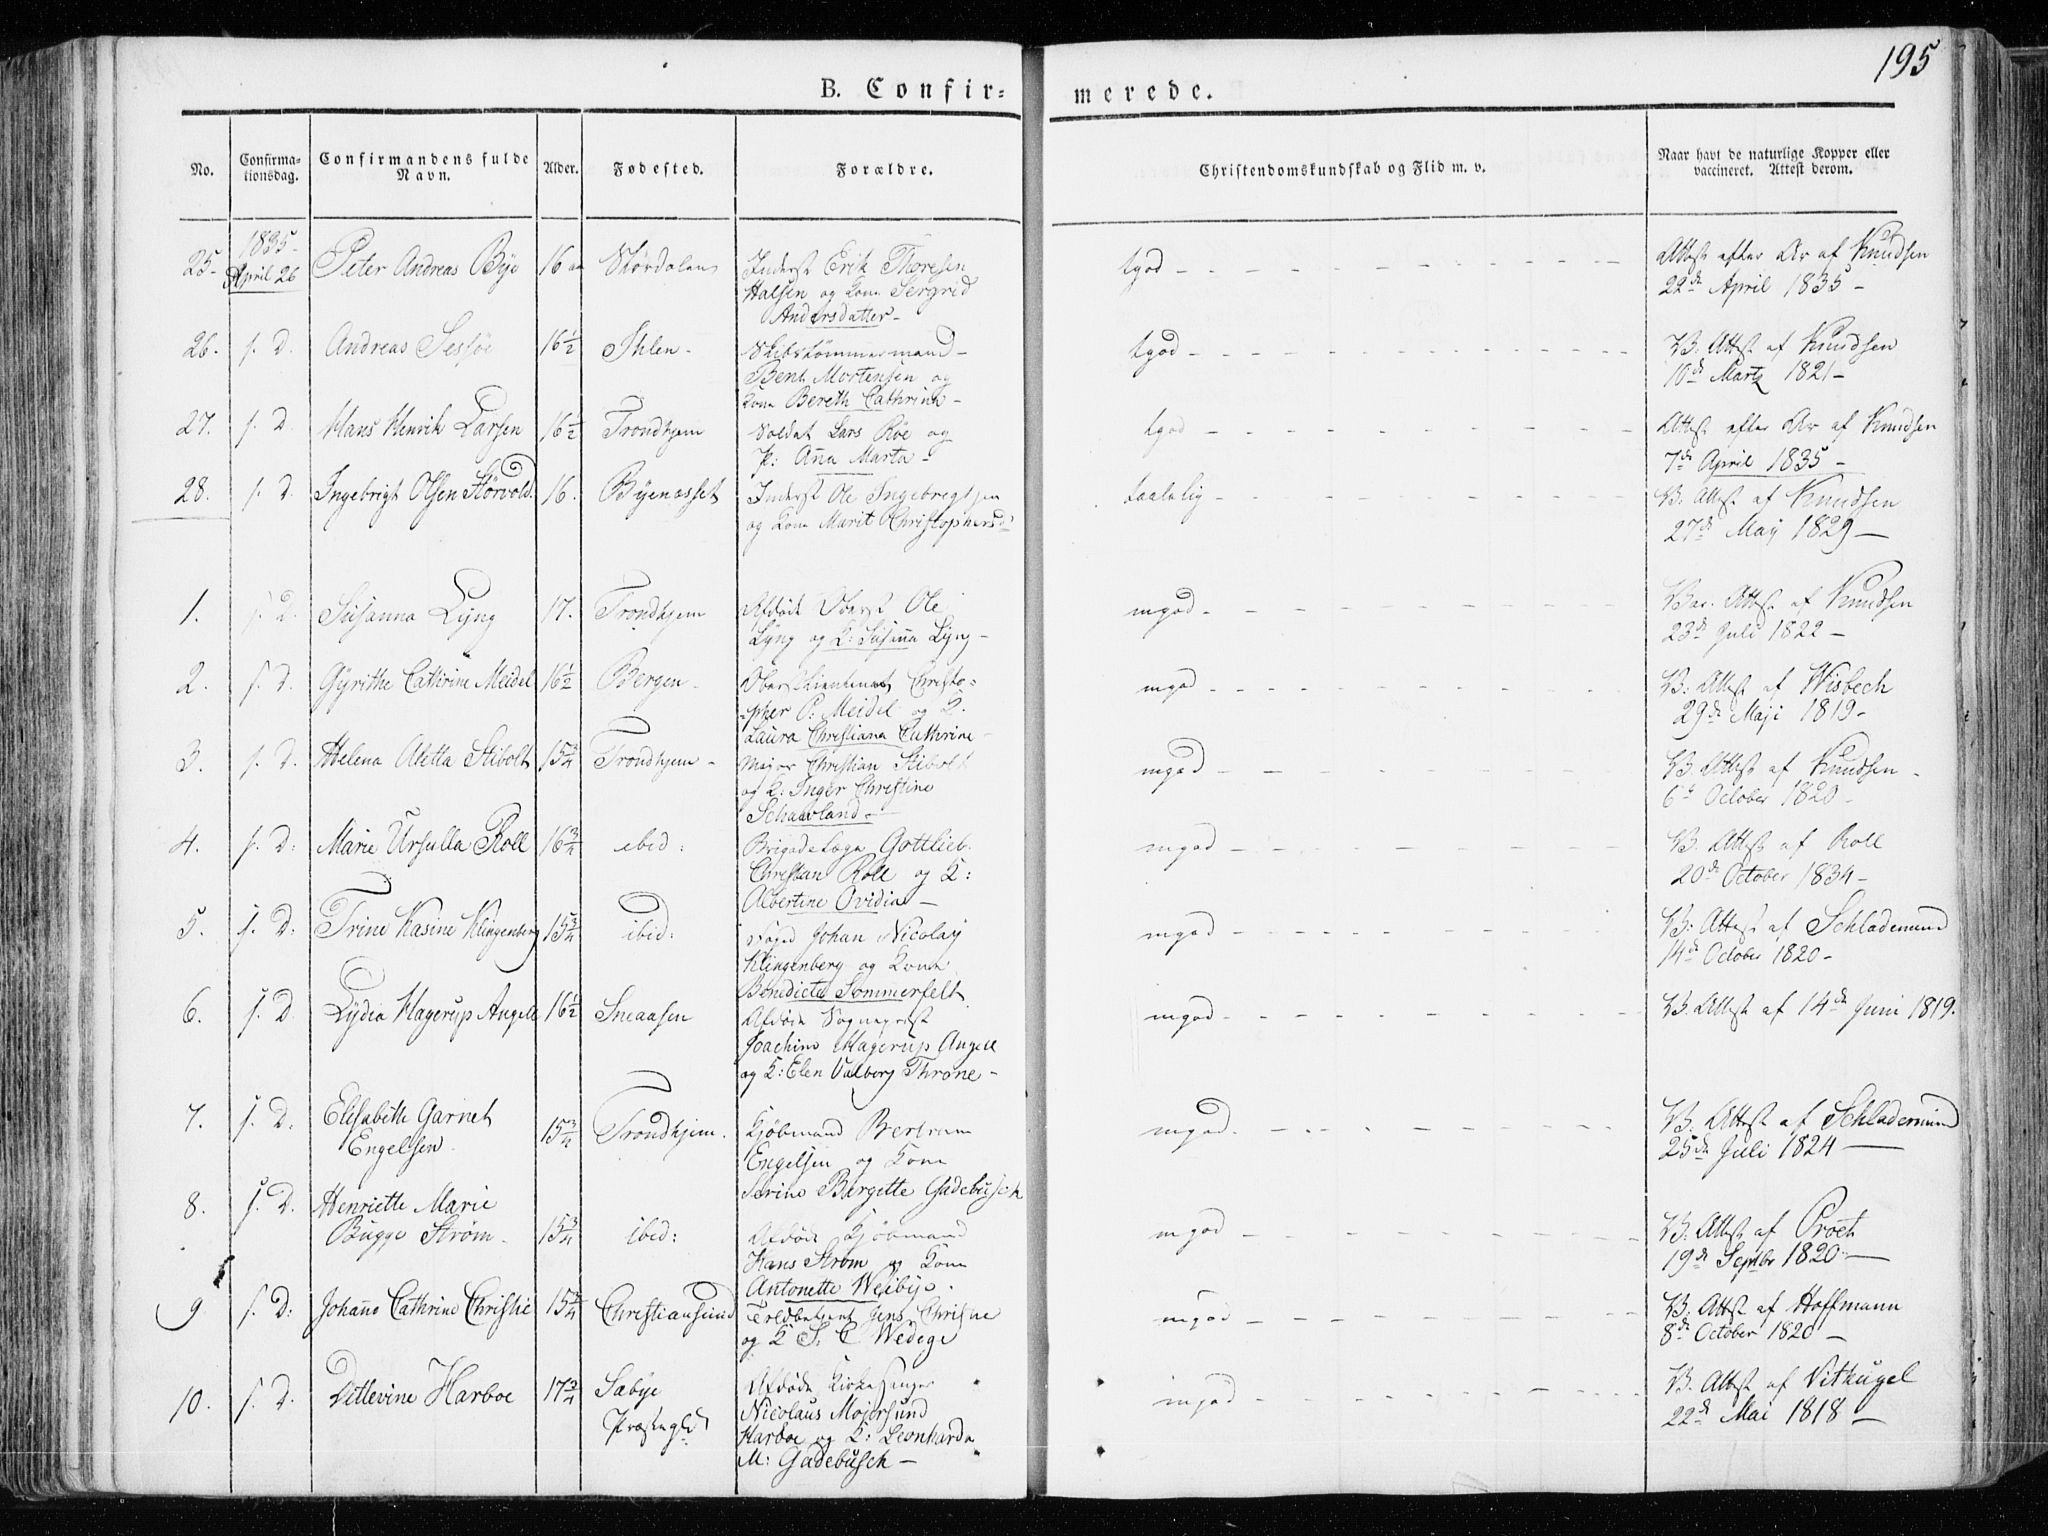 195
B. Confir=
merede.
No.
Confirma-
tionsdag.
Confirmandens fulde
Navn.
Alder.
Fødested.
Forældre.
Christendomskundskab og Flid m. v.
Naar havt de naturlige Kopper eller
vaccineret. Attest derom.
25. 1835. April 26 Peter Andreas Bye 16 Størdalen
Inderst Erik Thoresen
Halsen og Kone Sergrid
Andersdatter
tgod
Attest efter Ar af Knudsen
22de April 1835
26. s. D. Andreas Sesføe 16½ Ihlen
Skibstømmermand
Bent Mortensen og
Kone Bereth Cathrine
tgod
V. Attest af Knudsen
10de Martz 1821
27. s. D. Hans Henrik Larsen 16½ Trondhjem
Soldat Lars Røe og
P: Aña Marta
tgod
Attest efter Ar af Knudsen
7de April 1835
28. s. D. Ingebrigt Olsen Størvold 16. Byenæsset
Inderst Ole Ingebregtsen
og Kone Marit Christophersd:
taalelig
V. Attest af Knudsen
27de May 1829
1. s. D. Susanna Lyng 17. Trondhjem
Afdøde Oberst Ole
Lyng og K: Susaña Lyng
mgod
Vac. Attest af Knudsen
23de Juli 1822
2. s. D. Gyrithe Cathrine Meidel 16½ Bergen
Oberstlieutenat Christo=
pher P: Meidel og K.
Laura Christiana Cathrine
mgod
V: Attest af Wisbech
29de Maji 1819
3. s. D. Helena Aletta Stibolt 15¾ Trondhjem
Major Christian Stibolt
og K: Inger Christine
Schavland
mgod
V. Attest af Knudsen
6te October 1820
4. s. D: Marie Ursulla Roll 16¾ ibid:
Brigadelæge Gottlieb
Christian Roll og K:
Albertine Ovidia
mgod
V. Attest af Roll
20de October 1834
5. s. D: Trine Kasine Klingenberg 15¾ ibid:
Foged Johan Nicolay
Klingenberg og Kone
Benedicte Sommerfelt
mgod
V: Attest af Schlademund
14de October 1820
6. s. D Lydia Hagerup Angell 16½ Sneaasen
Afdøde Sogneprest
Joachim Hagerup Angell
og K: Elen Valborg Throne
mgod
V. Attest af 14de Juni 1819.
7. s. D. Elisabeth Garnet
Engelsen 15¾ Trondhjem.
Kjøbmand Bertram
Engelsen og Kone
Serine Birgette Gadebusch
mgod
V. Attest af Schlademund
25de Juli 1824
8. s. D. Henriette Marie
Bugge Strøm 15¾ ibid:
Afdøde Kjøbmand
Hans Strøm og Kone
Antonette Weibye.
mgod
V. Attest af Proet
19de Septbr 1820
9 s. D: Johaño Cathrine Christie 15¾ Christiansund
Toldbetient Jens Christie
og K S. C Wedege
mgod
V. Attest af Hoffmann
8de October 1820
10. s. D. Ditlevine Harboe 17¾ Sabye
Præstegjeld
Afdøde Kirkesanger
Nicolaus Mojersund
Harboe og K: Leonharda
M: Gadebusch
mgod
V. Attest af Vithugel
22de Mai 1818